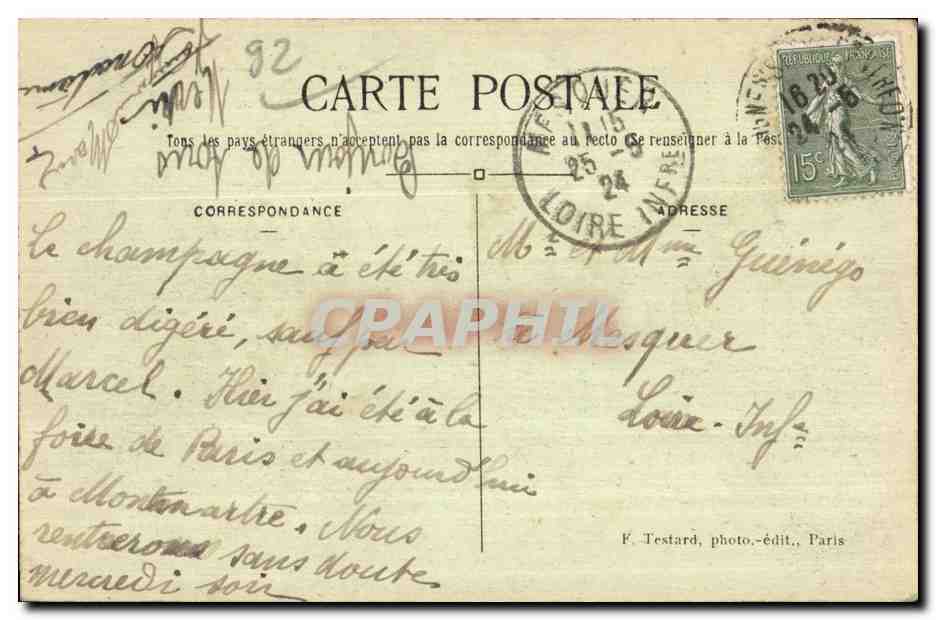 92
CARTE POSTALE
Tous les pays étrangers n'acceptent pas la correspondance au recto (Se renseigner à la Poste
CORRESPONDANCE
ADRESSE
Le champagne a été très
bien digéré, sauf par
Marcel. Hier j'ai été à la
foire de Paris et aujourd'hui
à Montmartre. Nous
rentrerons sans doute
mercredi soir
Bonjour de tous
Merci
Mr et Mme Guénégo
à Mesquer
Loire-Infre
F. Testard, photo.-édit., Paris
MESQUER
11 15
25 -5
24
LOIRE INFRE
REPUBLIQUE FRANÇAISE
15c
16 20
24 5
24
CPAPHIL